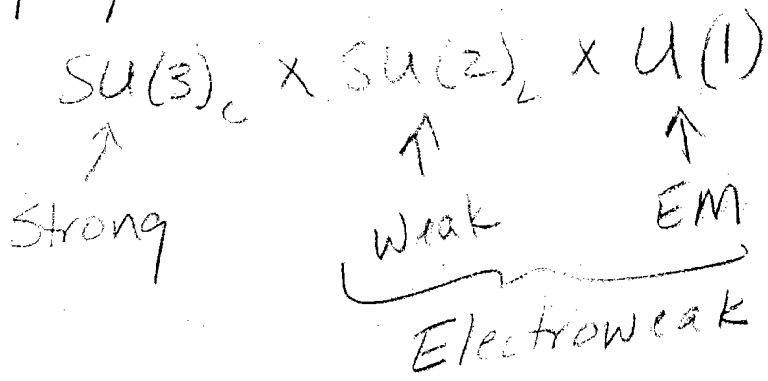 SU(3)c × SU(2)L × U(1)
Strong Weak EM
Electroweak